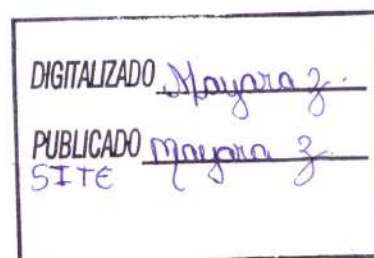 DIGITALIZADO Mayara Z.
PUBLICADO Mayara Z.
SITE